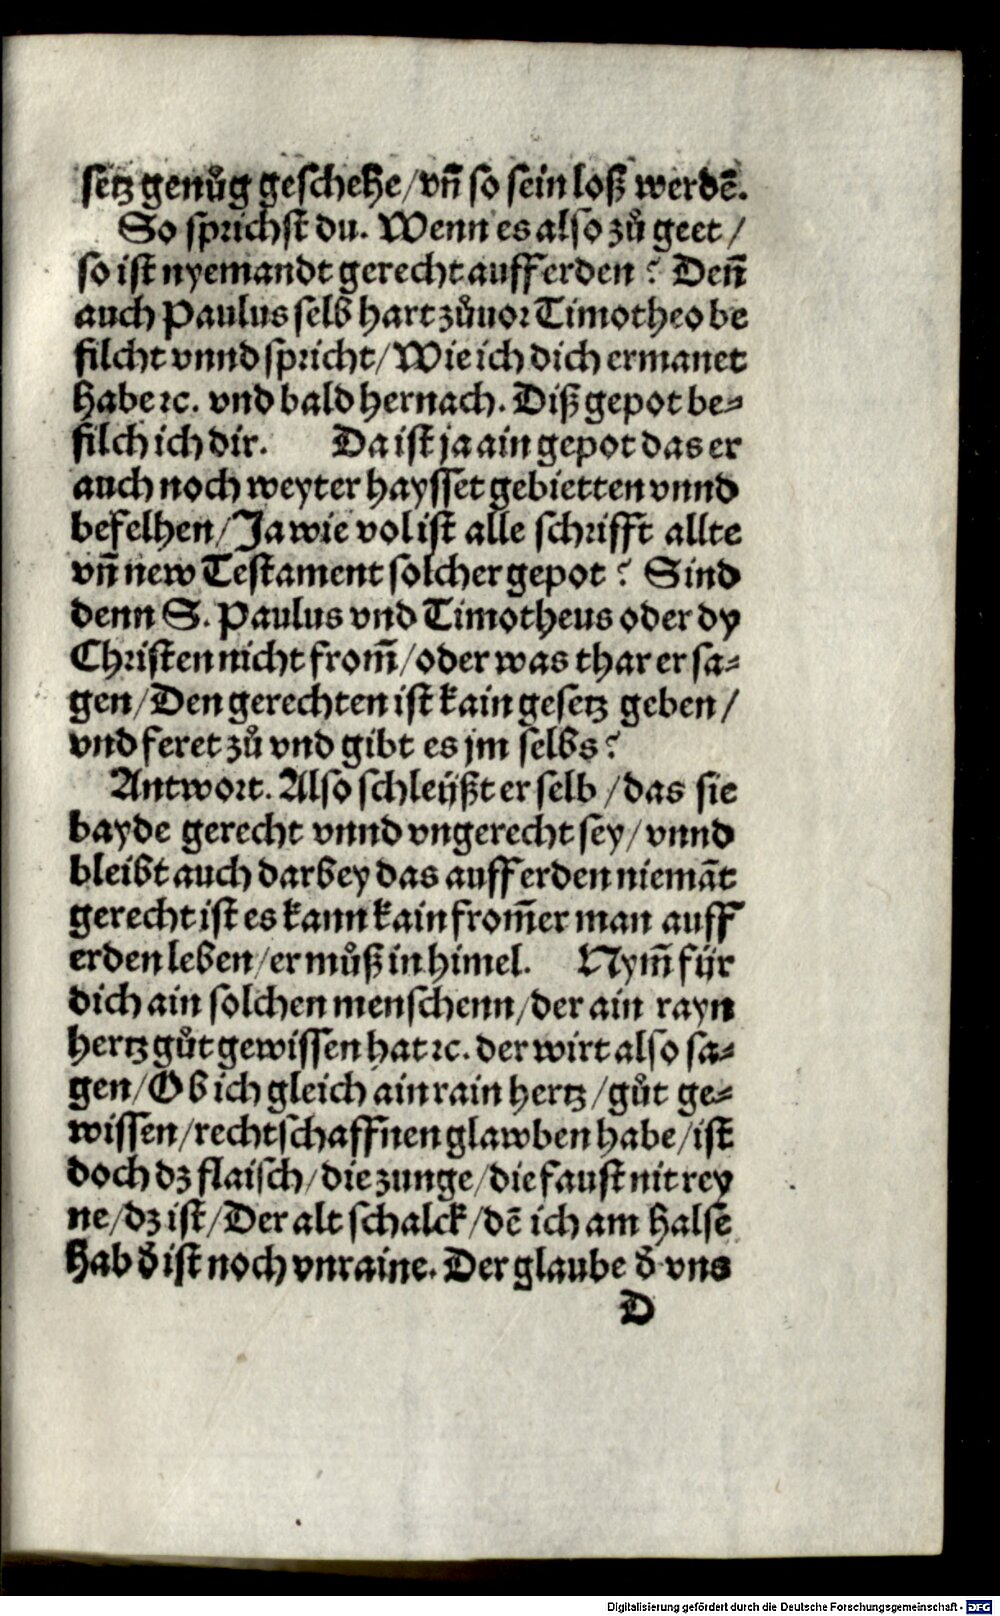 setz genůg geschehe/vn̄ so sein loß werdē.
So sprichst du. Wenn es also zů geet/
so ist nyemandt gerecht auff erden? Den̄
auch Paulus selb hart zůuor Timotheo be
filcht vnnd spricht/Wie ich dich ermanet
habe ⁊c. vnd bald hernach. Diß gepot be⸗
filch ich dir. Da ist ja ain gepot das er
auch noch weyter haysset gebietten vnnd
befelhen/Ja wie vol ist alle schrifft allte
vn̄ new Testament solcher gepot? Sind
denn S. Paulus vnd Timotheus oder dy
Christen nicht from̄/oder was thar er sa⸗
gen/Den gerechten ist kain gesetz geben/
vnd feret zů vnd gibt es jm selbs?
Antwort. Also schleüßt er selb/das sie
bayde gerecht vnnd vngerecht sey/vnnd
bleibt auch darbey das auff erden niemāt
gerecht ist es kann kain from̄er man auff
erden leben/er můß in himel. Nym̄ für
dich ain solchen menschenn/der ain rayn
hertz gůt gewissen hat ⁊c. der wirt also sa⸗
gen/Ob ich gleich ain rain hertz/gůt ge⸗
wissen/rechtschaffnen glawben habe/ist
doch dz flaisch/die zunge/die faust nit rey
ne/dz ist/Der alt schalck/dē ich am halse
hab d̄ ist noch vnraine. Der glaube d̄ vns
D
Digitalisierung gefördert durch die Deutsche Forschungsgemeinschaft - DFG